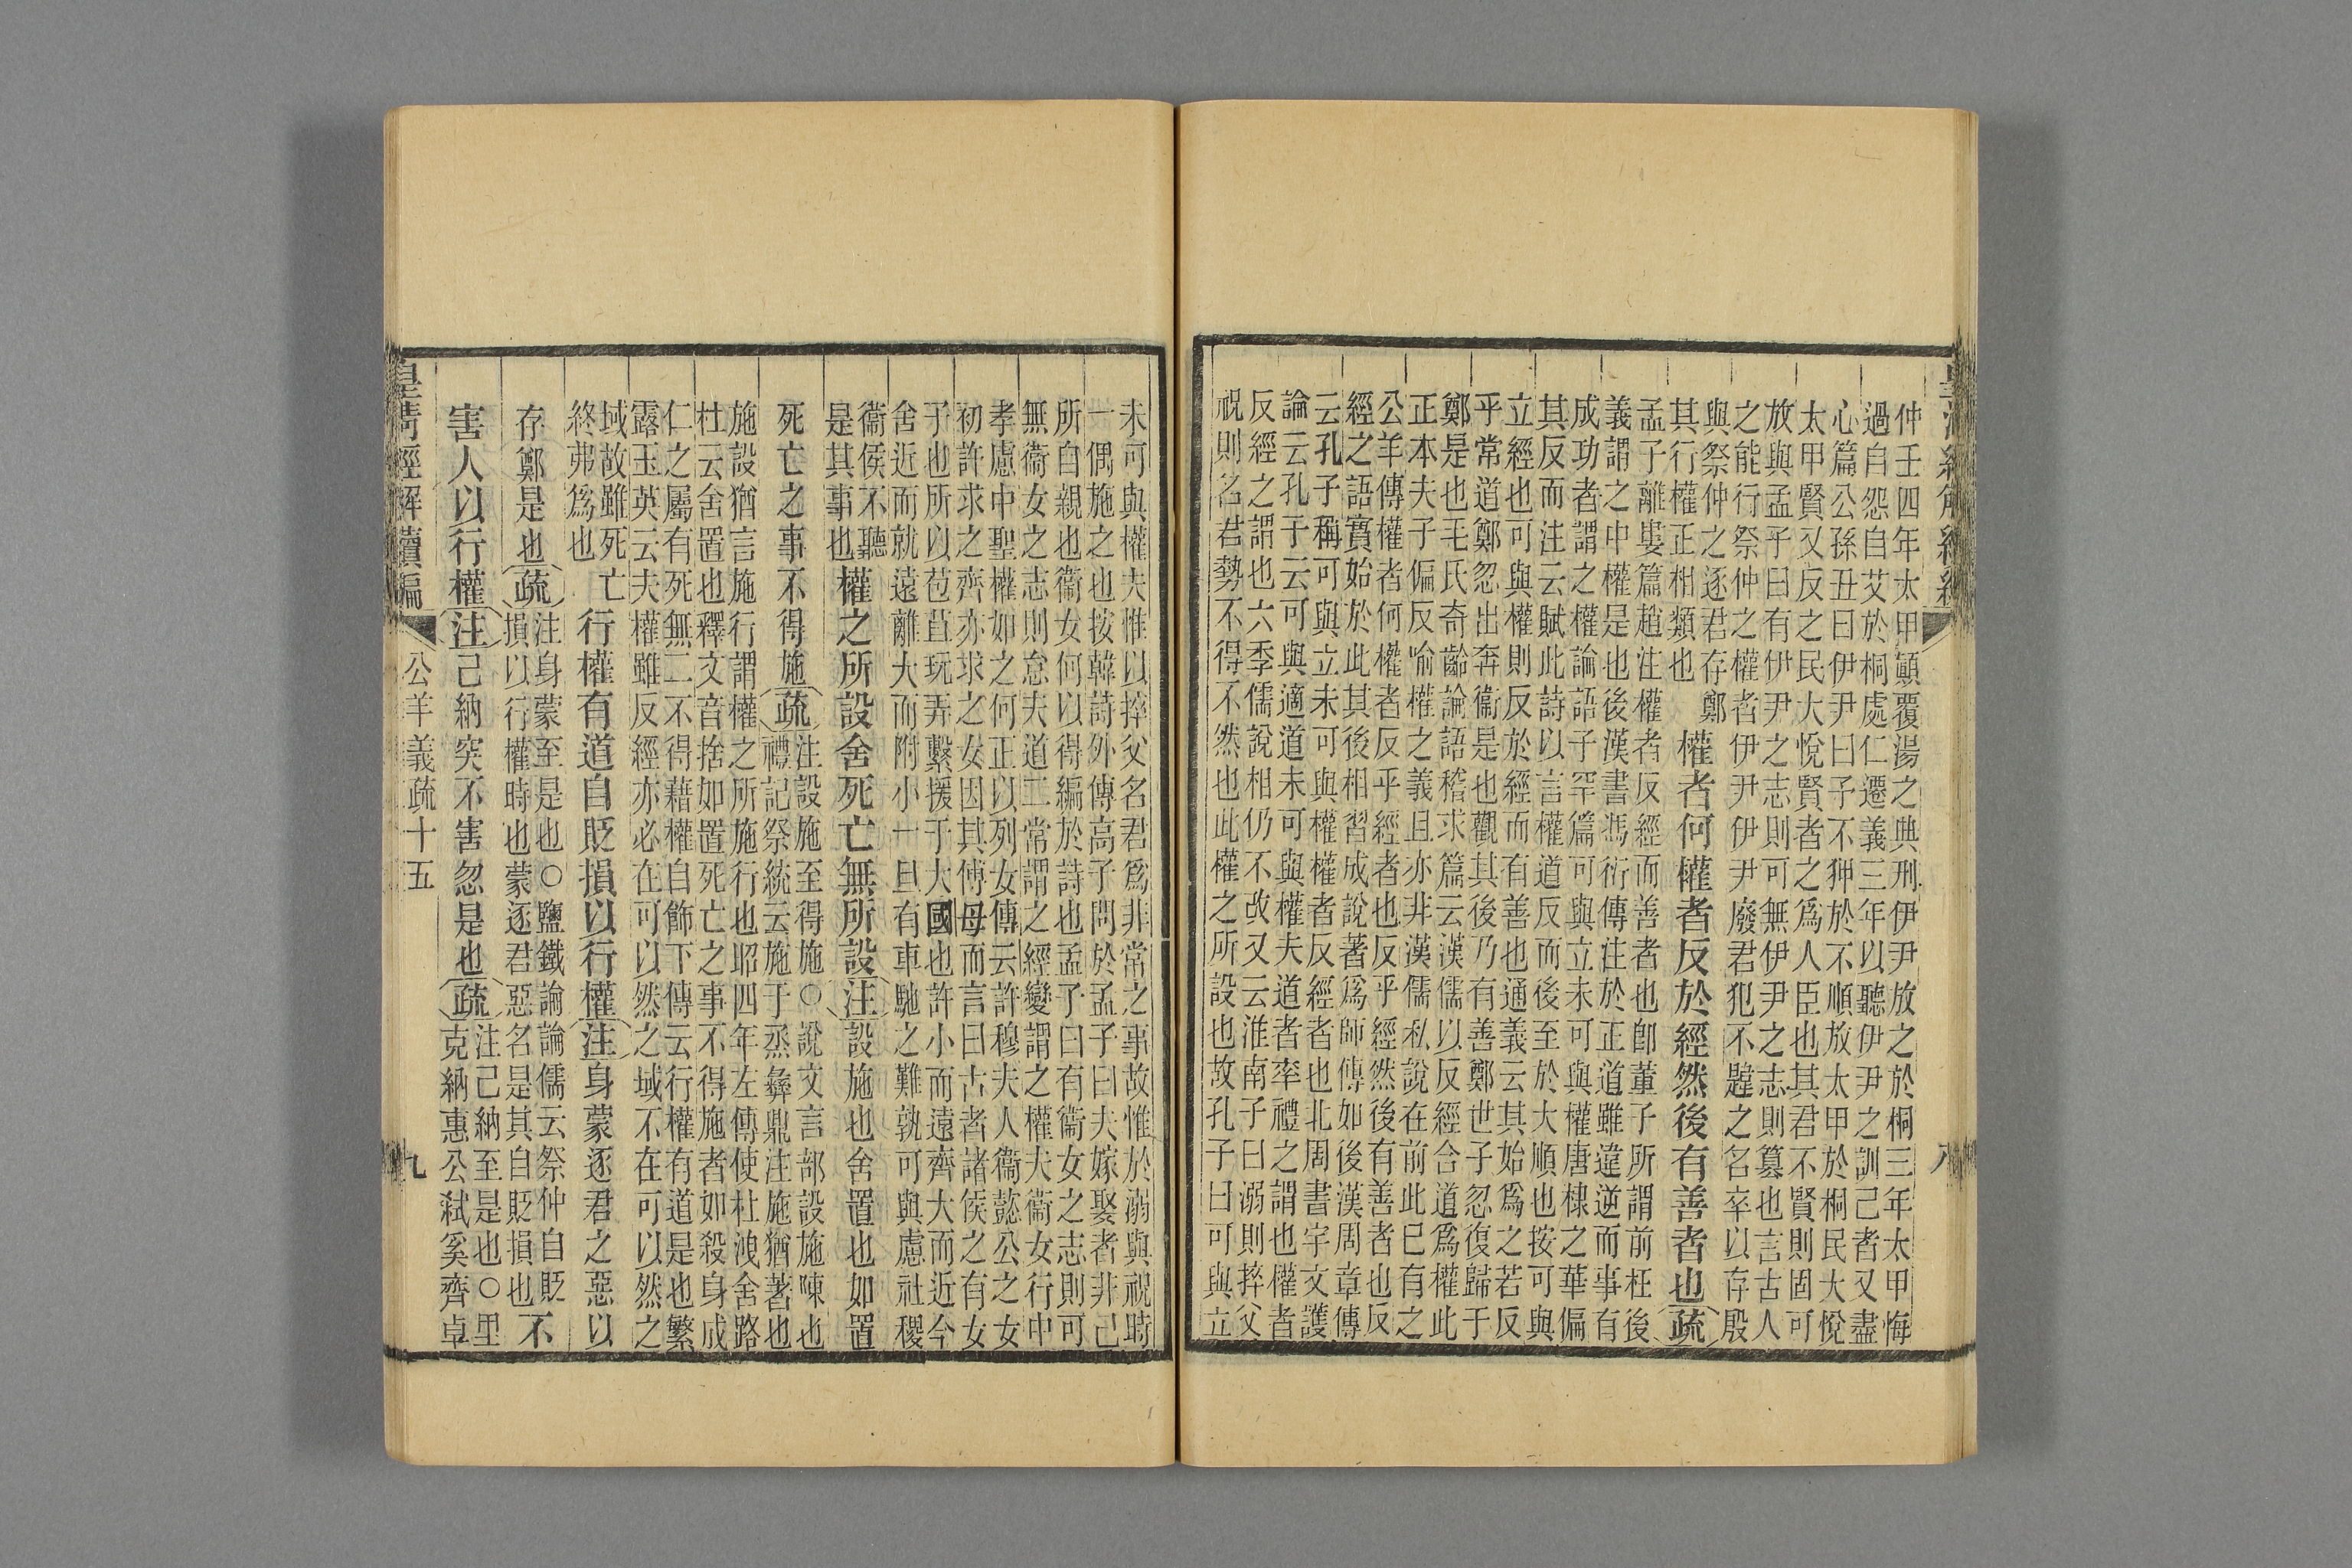 仲壬四年太甲顚覆湯之典刑伊尹放之於桐三年太甲悔
過自怨自艾於桐處仁遷義三年以聽伊尹之訓己者又盡
心篇公孫丑曰伊尹曰予不狎於不順放太甲於桐民大悅
太甲賢又反之民大悅賢者之爲人臣也其君不賢則固可
放與孟子曰有伊尹之志則可無伊尹之志則篡也言古人
之能行祭仲之權者伊尹伊尹廢君犯不韙之名卒以存殷
與祭仲之逐君存鄭
其行權正相類也
權者何權者反於經然後有善者也疏
孟子離婁篇趙注權者反經而善者也卽董子所謂前枉後
義謂之中權是也後漢書馮衍傳注於正道雖違逆而事有
成功者謂之權論語子罕篇可與立未可與權唐棣之華偏
其反而注云賦此詩以言權道反而後至於大順也按可與
立經也可與權則反於經而有善也通義云其始爲之若反
乎常道鄭忽出奔衞是也觀其後乃有善鄭世子忽復歸于
鄭是也毛氏奇齡論語稽求篇云漢儒以反經合道爲權此
正本夫子偏反喻權之義且亦非漢儒私說在前此已有之
公羊傳權者何權者反乎經者也反乎經然後有善者也反
經之語實始於此其後相習成說著爲師傳如後漢周章傳
云孔子稱可與立未可與權權者反經者也北周書宇文護
論云孔子云可與適道未可與權夫道者率禮之謂也權者
反經之謂也六季儒說相仍不改又云淮南子曰溺則捽父
祝則名君勢不得不然也此權之所設也故孔子曰可與立
未可與權夫惟以捽父名君爲非常之事故惟於溺與祝時
一偶施之也按韓詩外傳高子問於孟子曰夫嫁娶者非己
所自親也衞女何以得編於詩也孟子曰有衞女之志則可
無衞女之志則怠夫道二常謂之經變謂之權夫衞女行中
孝慮中聖權如之何正以列女傳云許穆夫人衞懿公之女
初許求之齊亦求之女因其傅母而言曰古者諸侯之有女
子也所以苞苴玩弄繫援于大國也許小而遠齊大而近今
舍近而就遠離大而附小一旦有車馳之難孰可與慮社稷
衞侯不聽
是其事也
權之所設舍死亡無所設注設施也舍置也如置
死亡之事不得施疏注設施至得施○說文言部設施陳也
禮記祭統云施于烝彝鼎注施猶著也
施設猶言施行謂權之所施行也昭四年左傳使杜洩舍路
杜云舍置也釋文音捨如置死亡之事不得施者如殺身成
仁之屬有死無二不得藉權自飾下傳云行權有道是也繁
露玉英云夫權雖反經亦必在可以然之域不在可以然之
域故雖死亡
終弗爲也
行權有道自貶損以行權注身蒙逐君之惡以
存鄭是也疏注身蒙至是也○鹽鐵論論儒云祭仲自貶
損以行權時也蒙逐君惡名是其自貶損也
不
害人以行權注己納突不害忽是也疏注己納至是也○里
克納惠公弒奚齊卓
皇清經解續編
公羊義疏十五
九
八